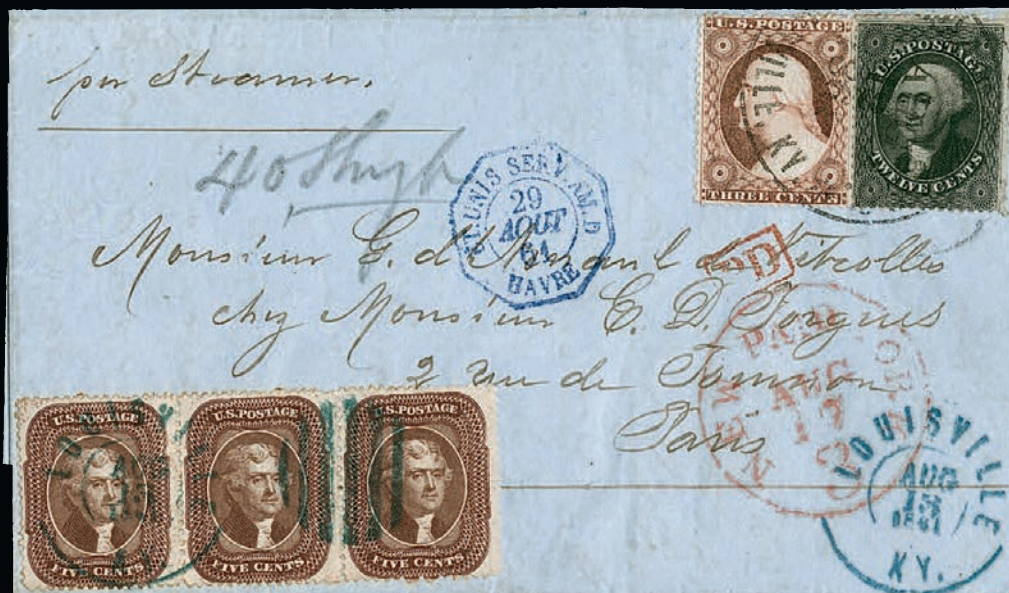 per Steamer.
U.S. POSTAGE
THREE CENTS
U.S. POSTAGE
TWELVE CENTS
40
ET. UNIS SERV. AM. D
29
AOUT
61
HAVRE
PD
Monsieur G. d'Arnaud de Vitrolles
chez Monsieur E. D. Forgues
2 rue de Tournon
Paris
NEW YORK
AUG
17
LOUISVILLE
AUG
15
1861
KY.
U.S. POSTAGE
FIVE CENTS
U.S. POSTAGE
FIVE CENTS
U.S. POSTAGE
FIVE CENTS